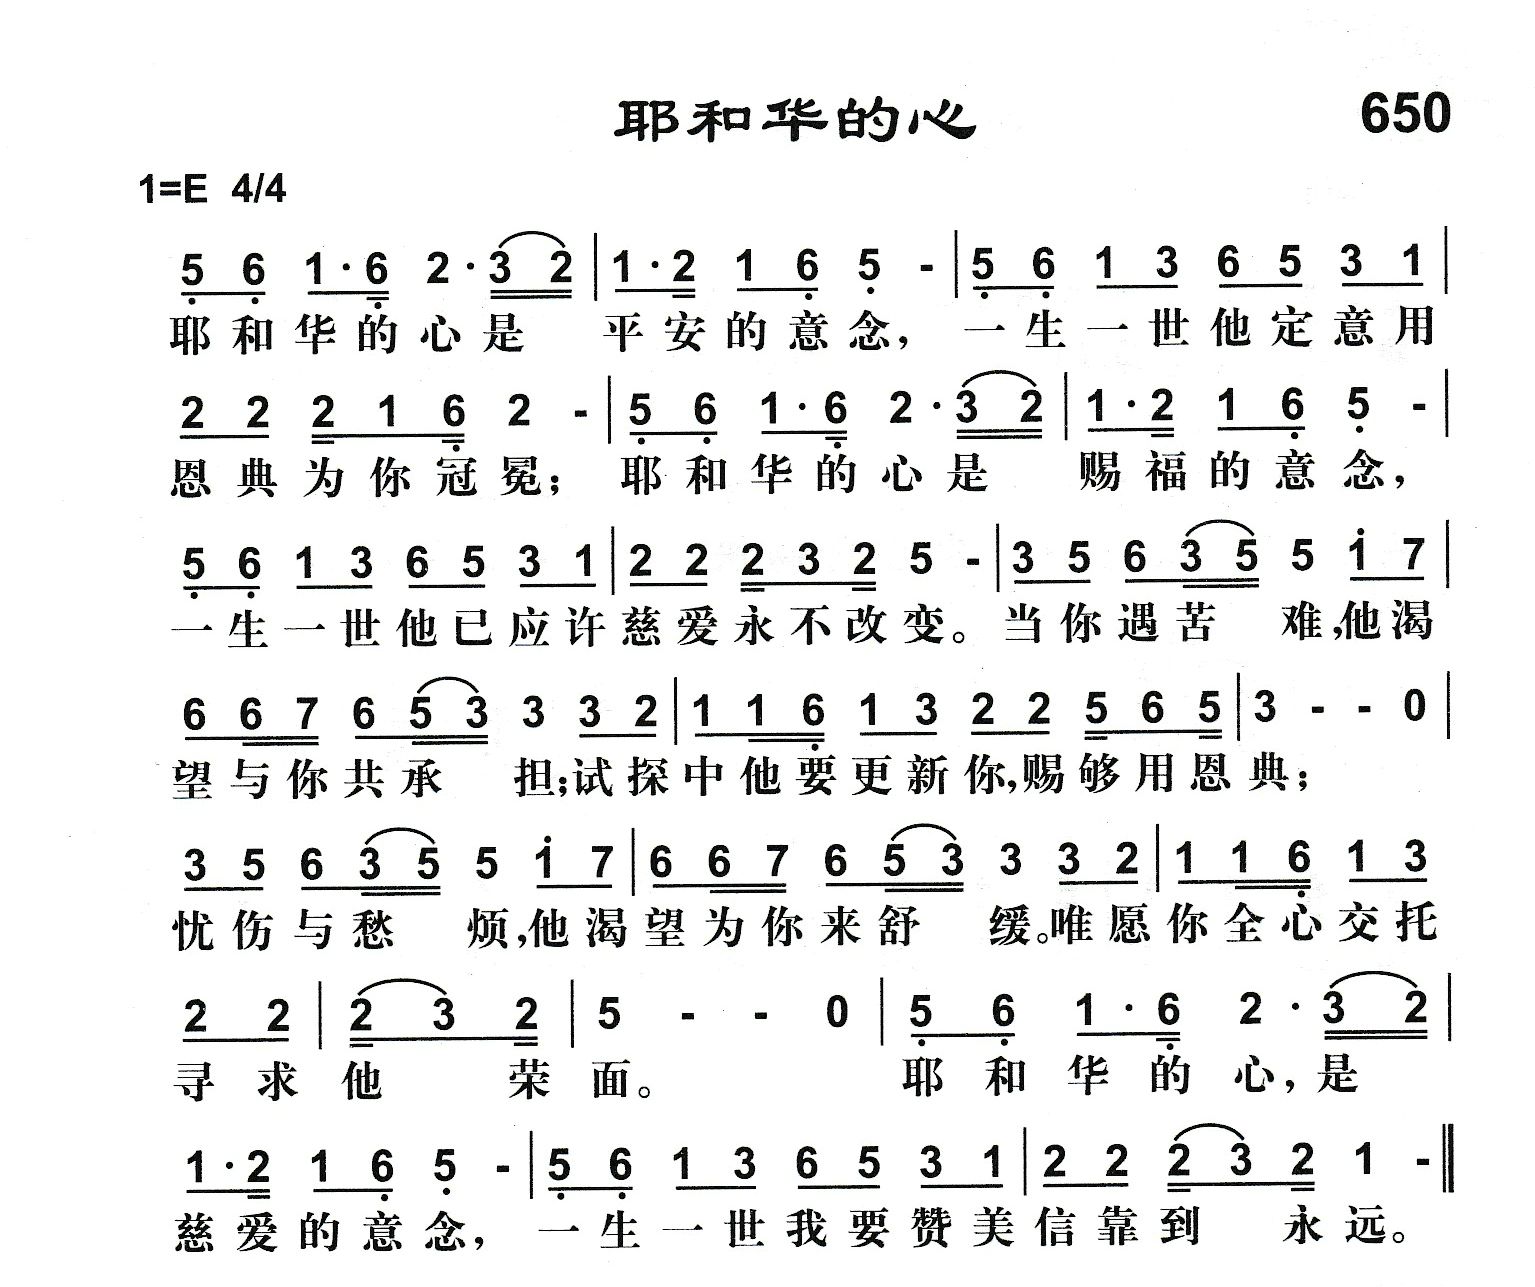 耶和华的心
650
1=E 4/4
5 6 1·6 2·3 2 | 1·2 1 6 5 - | 5 6 1 3 6 5 3 1 |
耶和华的心是 平安的意念，一生一世他定意用
2 2 2 1 6 2 - | 5 6 1·6 2·3 2 | 1·2 1 6 5 - |
恩典为你冠冕；耶和华的心是 赐福的意念，
5 6 1 3 6 5 3 1 | 2 2 2 3 2 5 - | 3 5 6 3 5 5 1 7 |
一生一世他已应许慈爱永不改变。当你遇苦 难，他渴
6 6 7 6 5 3 3 3 2 | 1 1 6 1 3 2 2 5 6 5 | 3 - - 0 |
望与你共承 担；试探中他要更新你，赐够用恩典；
3 5 6 3 5 5 1 7 | 6 6 7 6 5 3 3 3 2 | 1 1 6 1 3
忧伤与愁 烦，他渴望为你来舒 缓。唯愿你全心交托
2 2 | 2 3 2 | 5 - - 0 | 5 6 1·6 2·3 2 |
寻求他 荣面。 耶和华的心，是
1·2 1 6 5 - | 5 6 1 3 6 5 3 1 | 2 2 2 3 2 1 - ‖
慈爱的意念，一生一世我要赞美信靠到 永远。